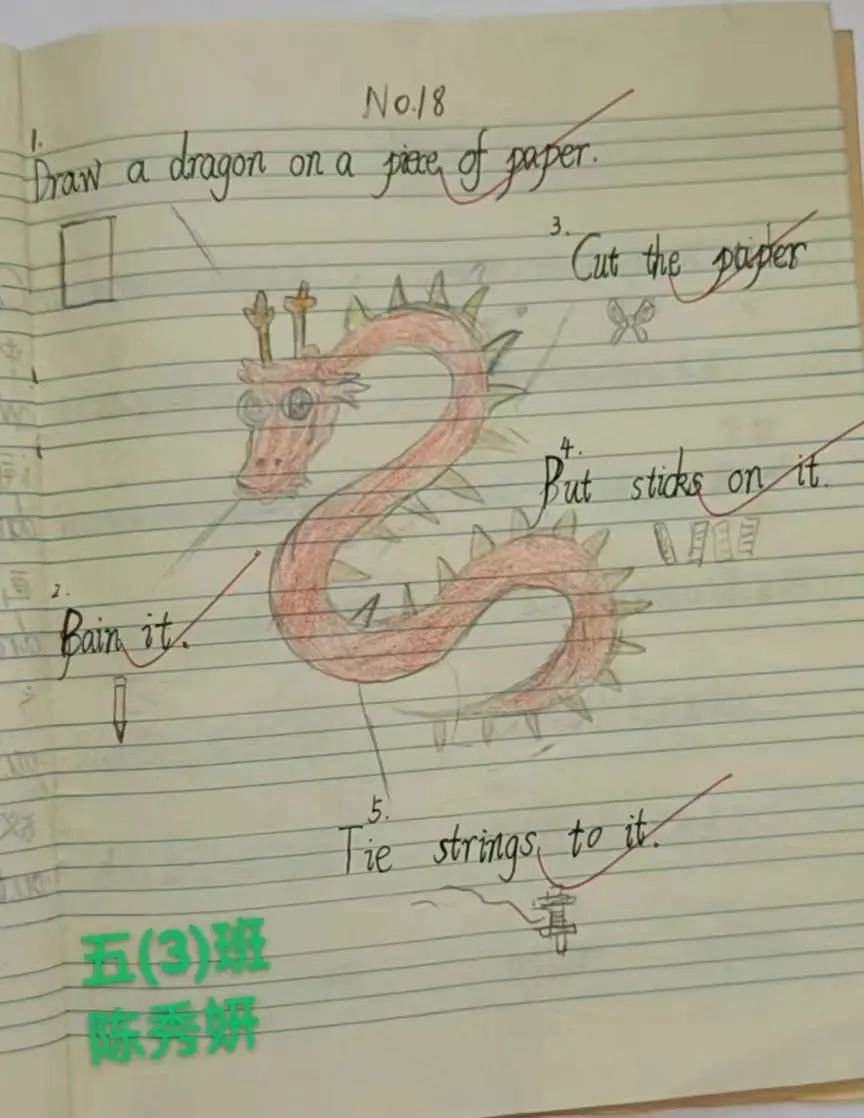 No.18
1.
Draw a dragon on a piece of paper.
3.
Cut the paper
4.
But sticks on it.
2.
Bain it.
5.
Tie strings to it.
五(3)班
陈秀妍